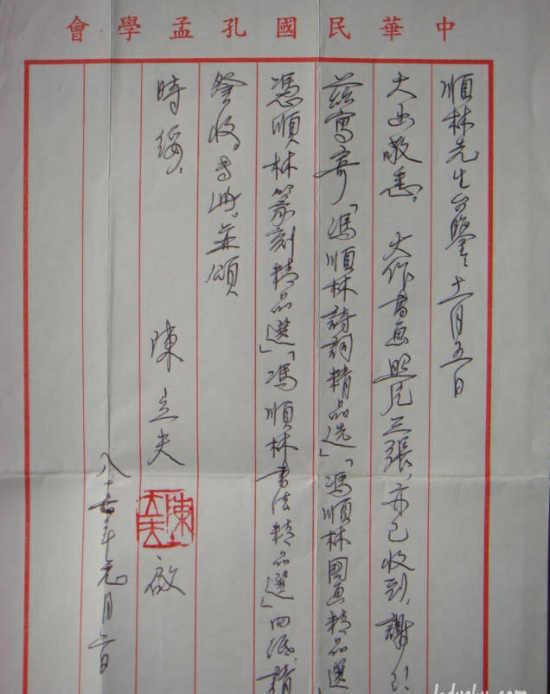 中華民國孔孟學會
順林先生台鑒:十一月五日
大函敬悉。大作書畫照片三張,亦已收到,謝謝!
茲寫寄「馮順林詩詞精品選」「馮順林國畫精品選」
馮順林篆刻精品選」「馮順林書法精品選」四紙,請
詧收。專此,並頌
時綏。
陳立夫 陳立夫 啟
八十六年元月二日